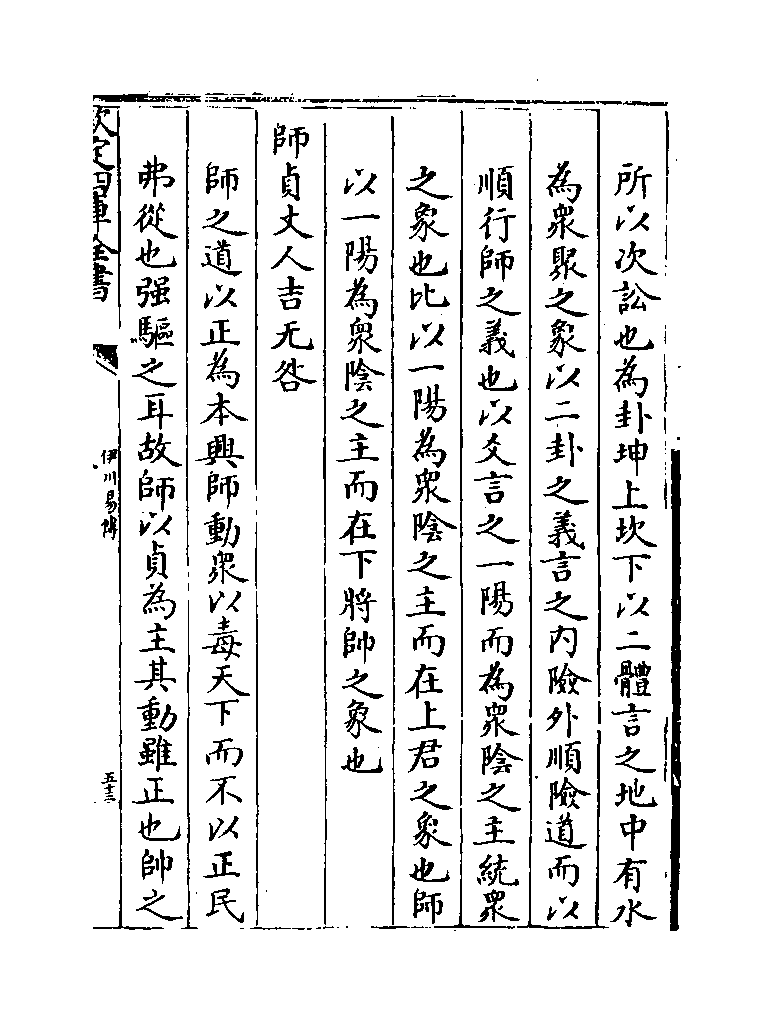 所以次訟也為卦坤上坎下以二體言之地中有水
為衆聚之象以二卦之義言之内險外順險道而以
順行師之義也以爻言之一陽而為衆陰之主統衆
之象也比以一陽為衆陰之主而在上君之象也師
以一陽為衆陰之主而在下將帥之象也
師貞丈人吉无咎
師之道以正為本興師動衆以毒天下而不以正民
弗從也强驅之耳故師以貞為主其動雖正也帥之
欽定四庫全書
伊川易傳
五十三